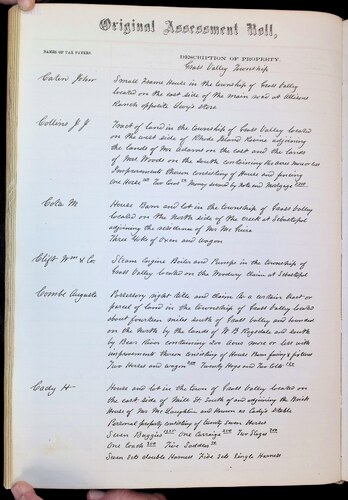 Original Assessment Roll,
NAMES OF TAX PAYERS.
DESCRIPTION OF PROPERTY.
Grass Valley Township
Caten John
Small Frame House in the township of Grass Valley
located on the east side of the main road at Allisons
Ranch opposite store
Collins J J
Tract of land in the township of Grass Valley located
on the west side of Rhode Island Ravine adjoining
the lands of Mr Adams on the east and the lands
of Mrs Woods on the south containing acres more or less
Improvements thereon consisting of House and fencing
One Horse Two Cows Money secured by Note and Mortgage
Cole M
House Barn and lot in the township of Grass Valley
located on the North side of the creek at Sebastopol
adjoining the residence of Mr Mc
Three Yoke of Oxen and wagon
Clift Wm & Co.
Steam Engine Boiler and Pumps in the township of
Grass Valley located on the claim at Sebastopol
Combe Auguste
Possessory right title and claim to a certain tract or
parcel of land in the township of Grass Valley located
about fourteen miles south of Grass Valley and bounded
on the North by the lands of J B Ragsdale and south
by Bear River containing 200 Acres more or less with
improvements thereon consisting of House Barn fencing &
Two Horses and wagon Twenty Hogs and Two Colts
Cady H
House and lot in the town of Grass Valley located on
the east side of Mill St. South of and adjoining the Brick
House of Mr Mc Laughlin and known as Cadys Stable
Personal property consisting of Twenty Seven Horses
Seven Buggies One Carriage Two Hogs
One Coach Five Saddles
Seven Sets double Harness Five Sets Single Harness